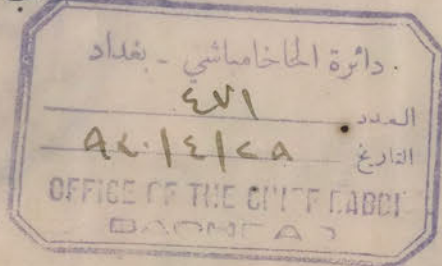 دائرة الحاخامباشي - بغداد
العدد ٤٧١
التاريخ ٩٤٠/٤/٢٩
OFFICE OF THE CHIEF RABBI
BAGHDAD